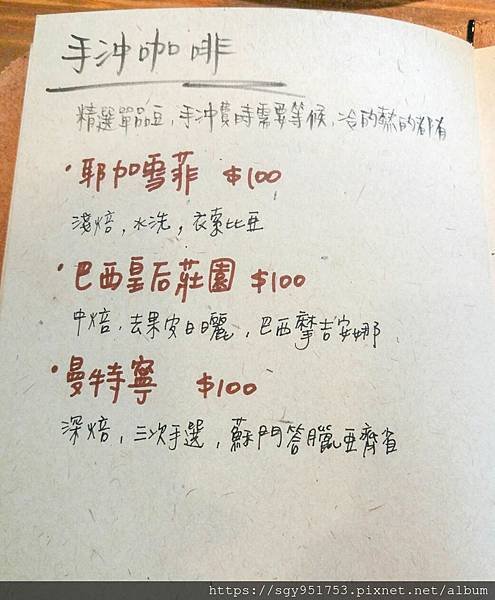 手沖咖啡
精選單品豆，手沖費時需要等候，冷的熱的都有
·耶加雪菲 $100
淺焙，水洗，衣索比亞
·巴西皇后莊園 $100
中焙，去果皮日曬，巴西摩吉安娜
·曼特寧 $100
深焙，三次手選，蘇門答臘亞齊省
https://sgy951753.pixnet.net/album